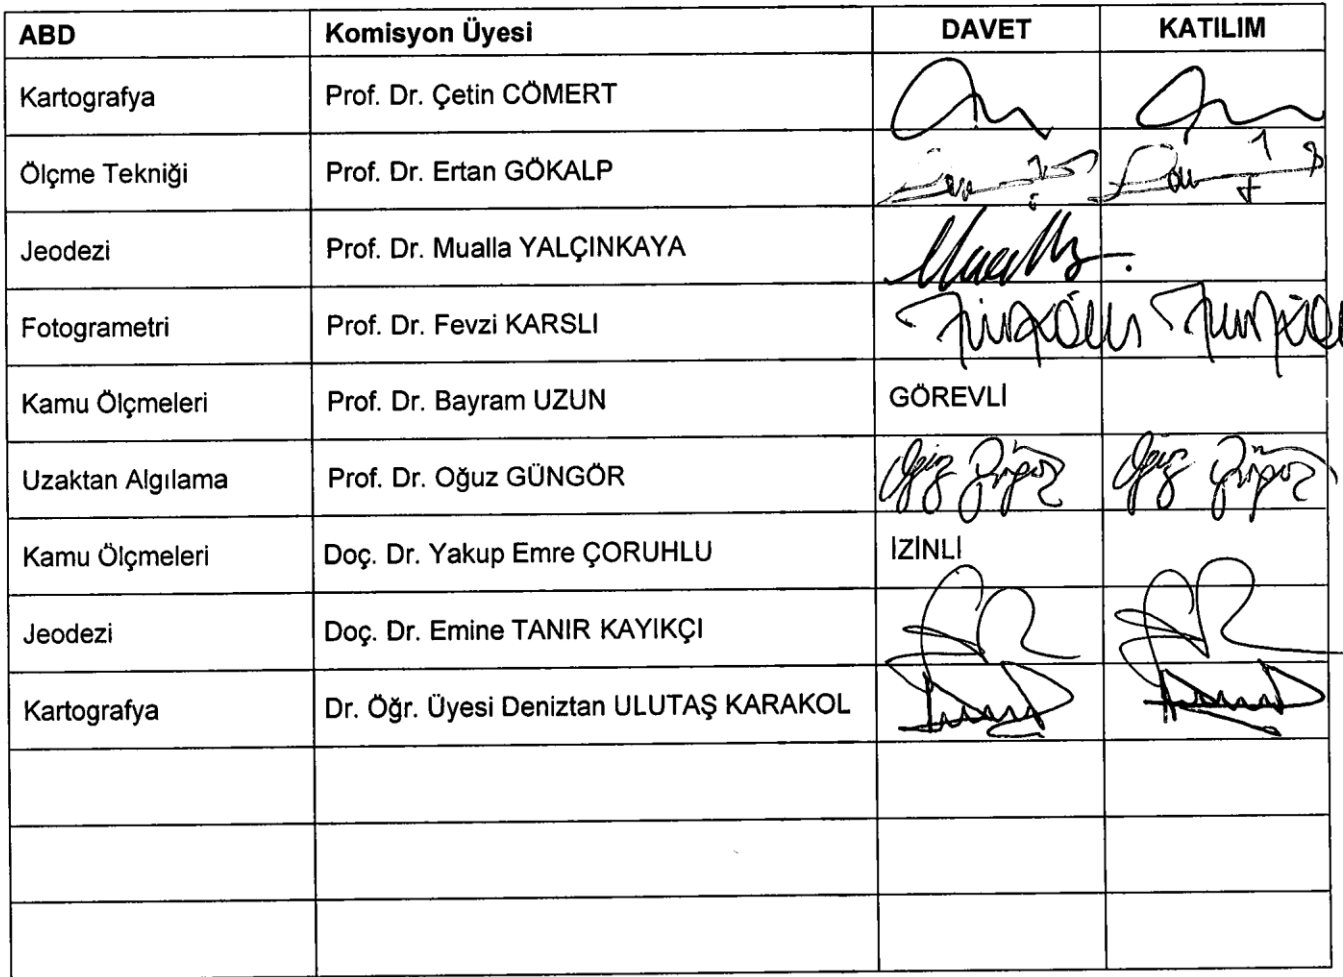 ABD Komisyon Üyesi DAVET KATILIM
Kartografya Prof. Dr. Çetin CÖMERT
Ölçme Tekniği Prof. Dr. Ertan GÖKALP
Jeodezi Prof. Dr. Mualla YALÇINKAYA
Fotogrametri Prof. Dr. Fevzi KARSLI
Kamu Ölçmeleri Prof. Dr. Bayram UZUN GÖREVLİ
Uzaktan Algılama Prof. Dr. Oğuz GÜNGÖR
Kamu Ölçmeleri Doç. Dr. Yakup Emre ÇORUHLU İZİNLİ
Jeodezi Doç. Dr. Emine TANIR KAYIKÇI
Kartografya Dr. Öğr. Üyesi Deniztan ULUTAŞ KARAKOL